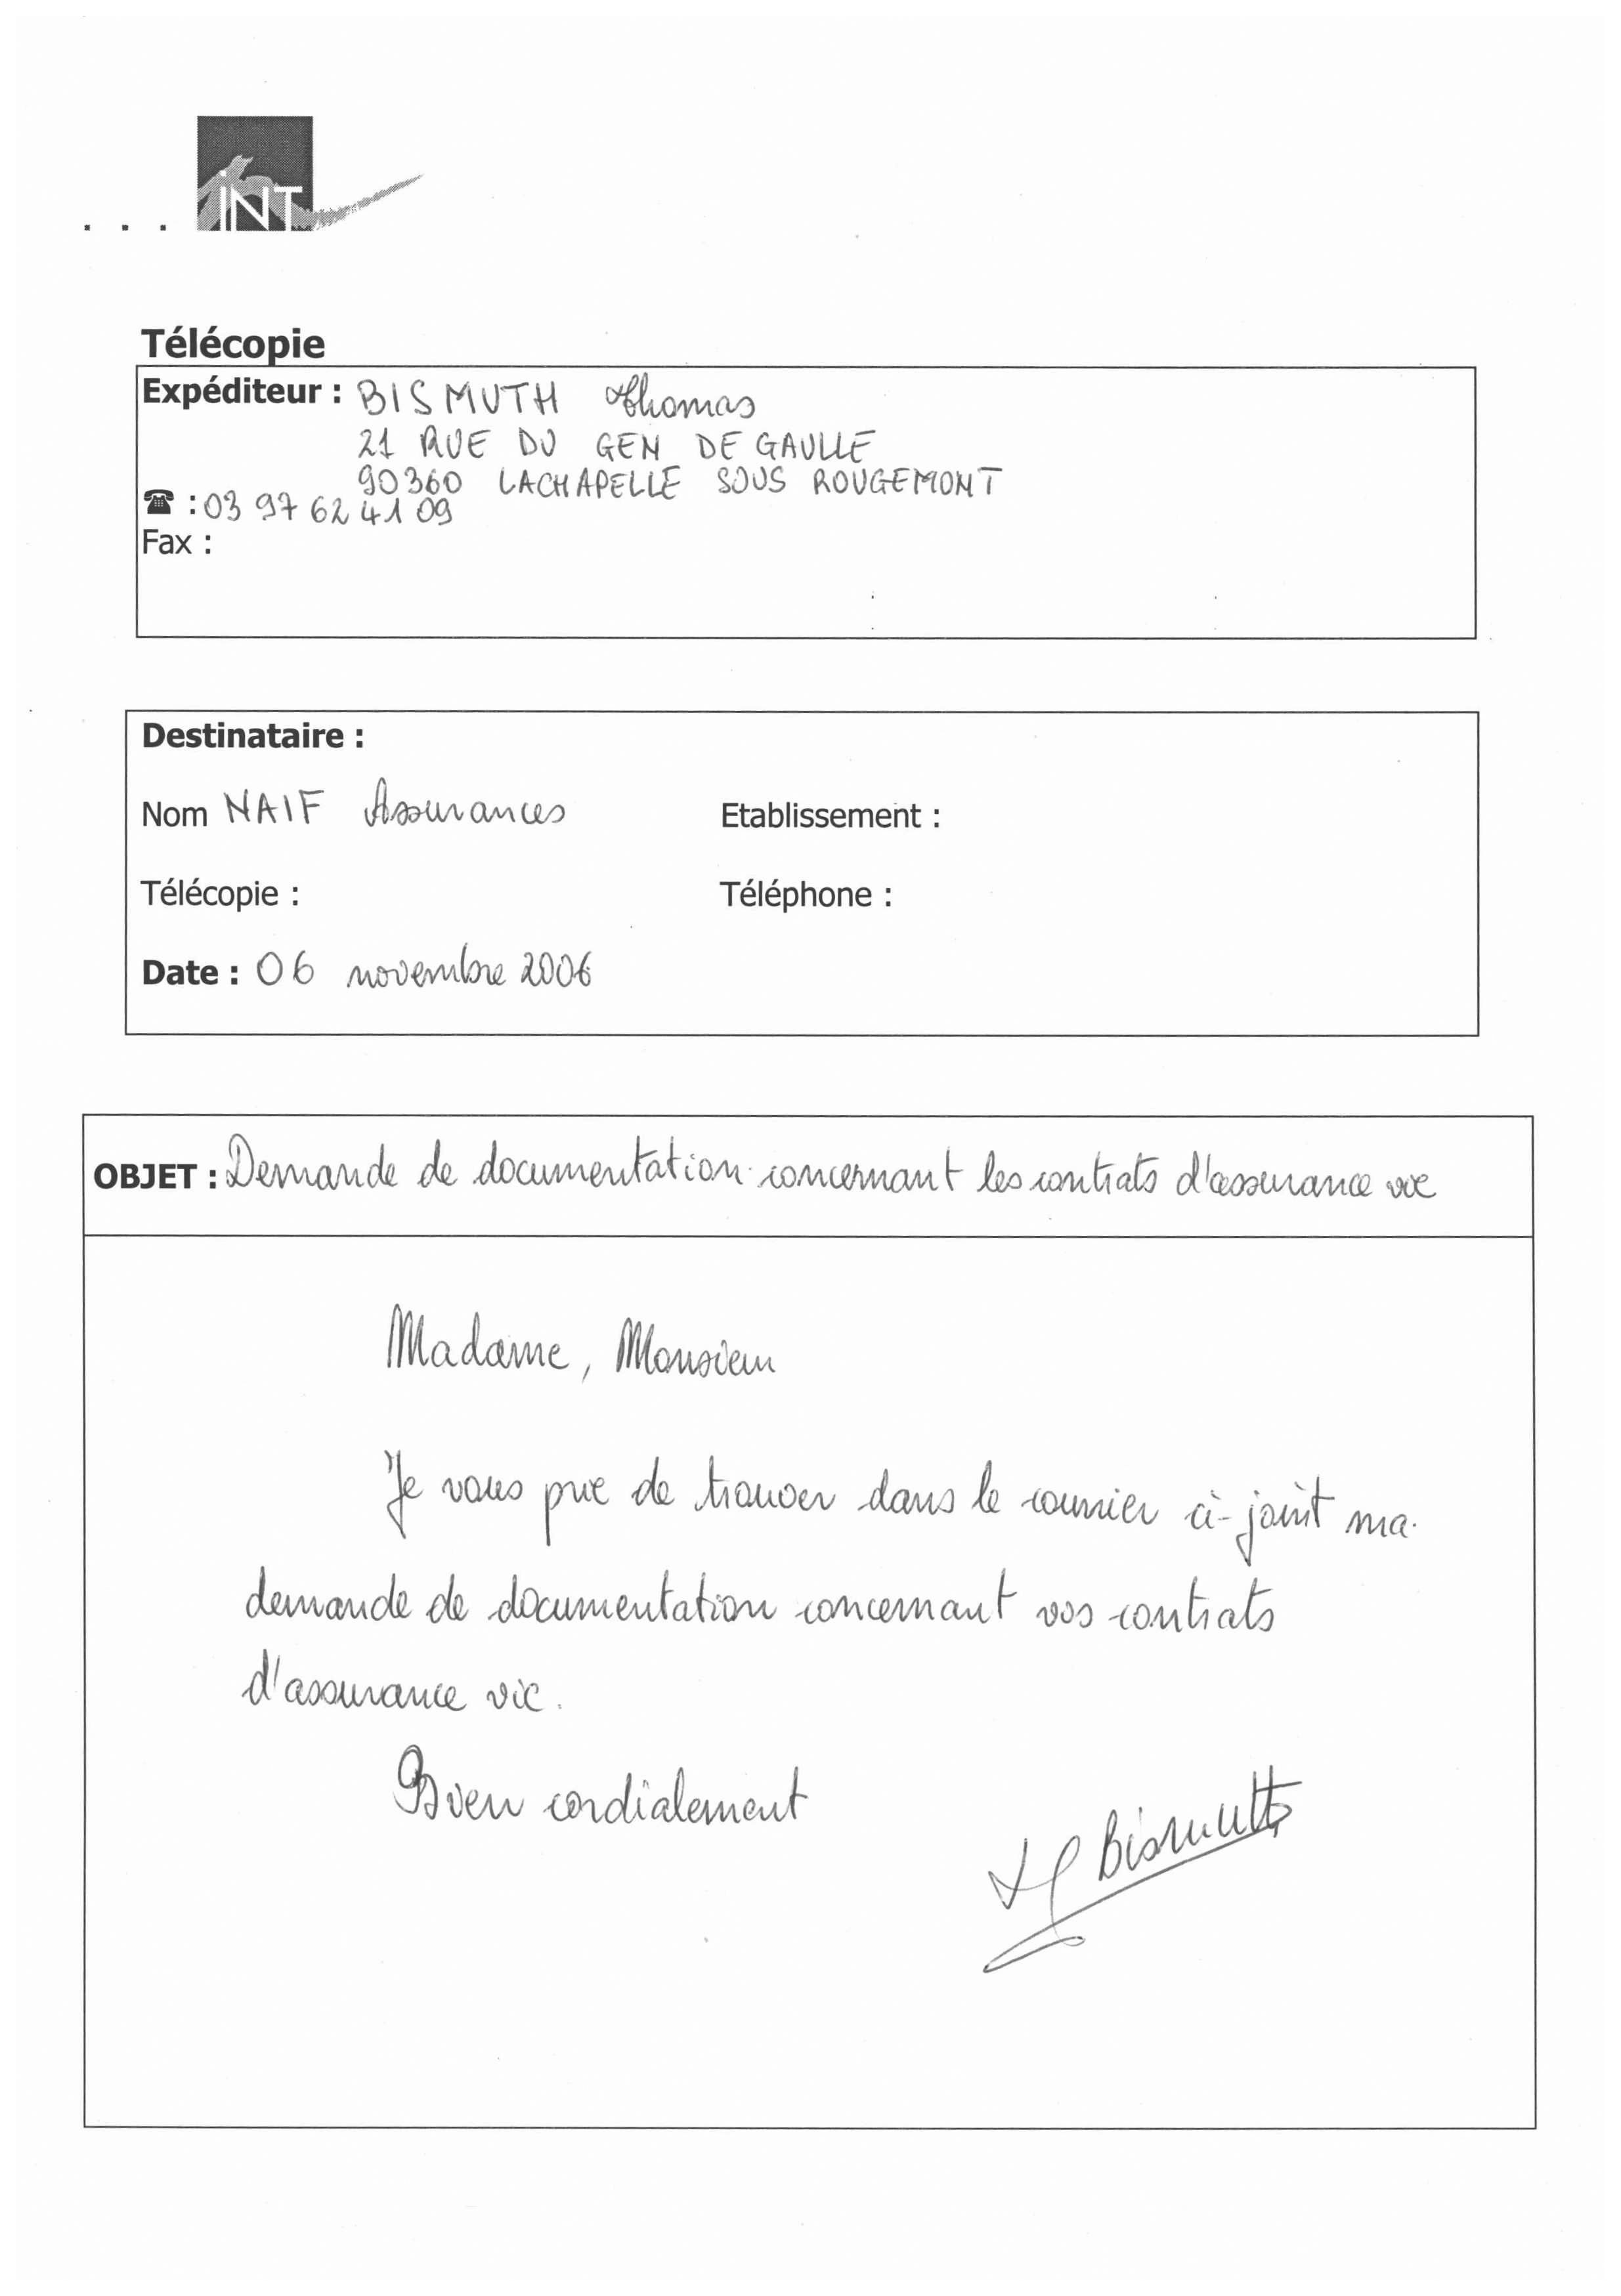 ... INT
Télécopie
Expéditeur : BISMUTH Thomas
21 RUE DU GEN DE GAULLE
90360 LACHAPELLE SOUS ROUGEMONT
☎ : 03 97 62 41 09
Fax :
Destinataire :
Nom NAIF Assurances Etablissement :
Télécopie : Téléphone :
Date : 06 novembre 2006
OBJET : Demande de documentation concernant les contrats d'assurance vie
Madame, Monsieur
Je vous prie de trouver dans le courrier ci-joint ma
demande de documentation concernant vos contrats
d'assurance vie.
Bien cordialement
Bismuth